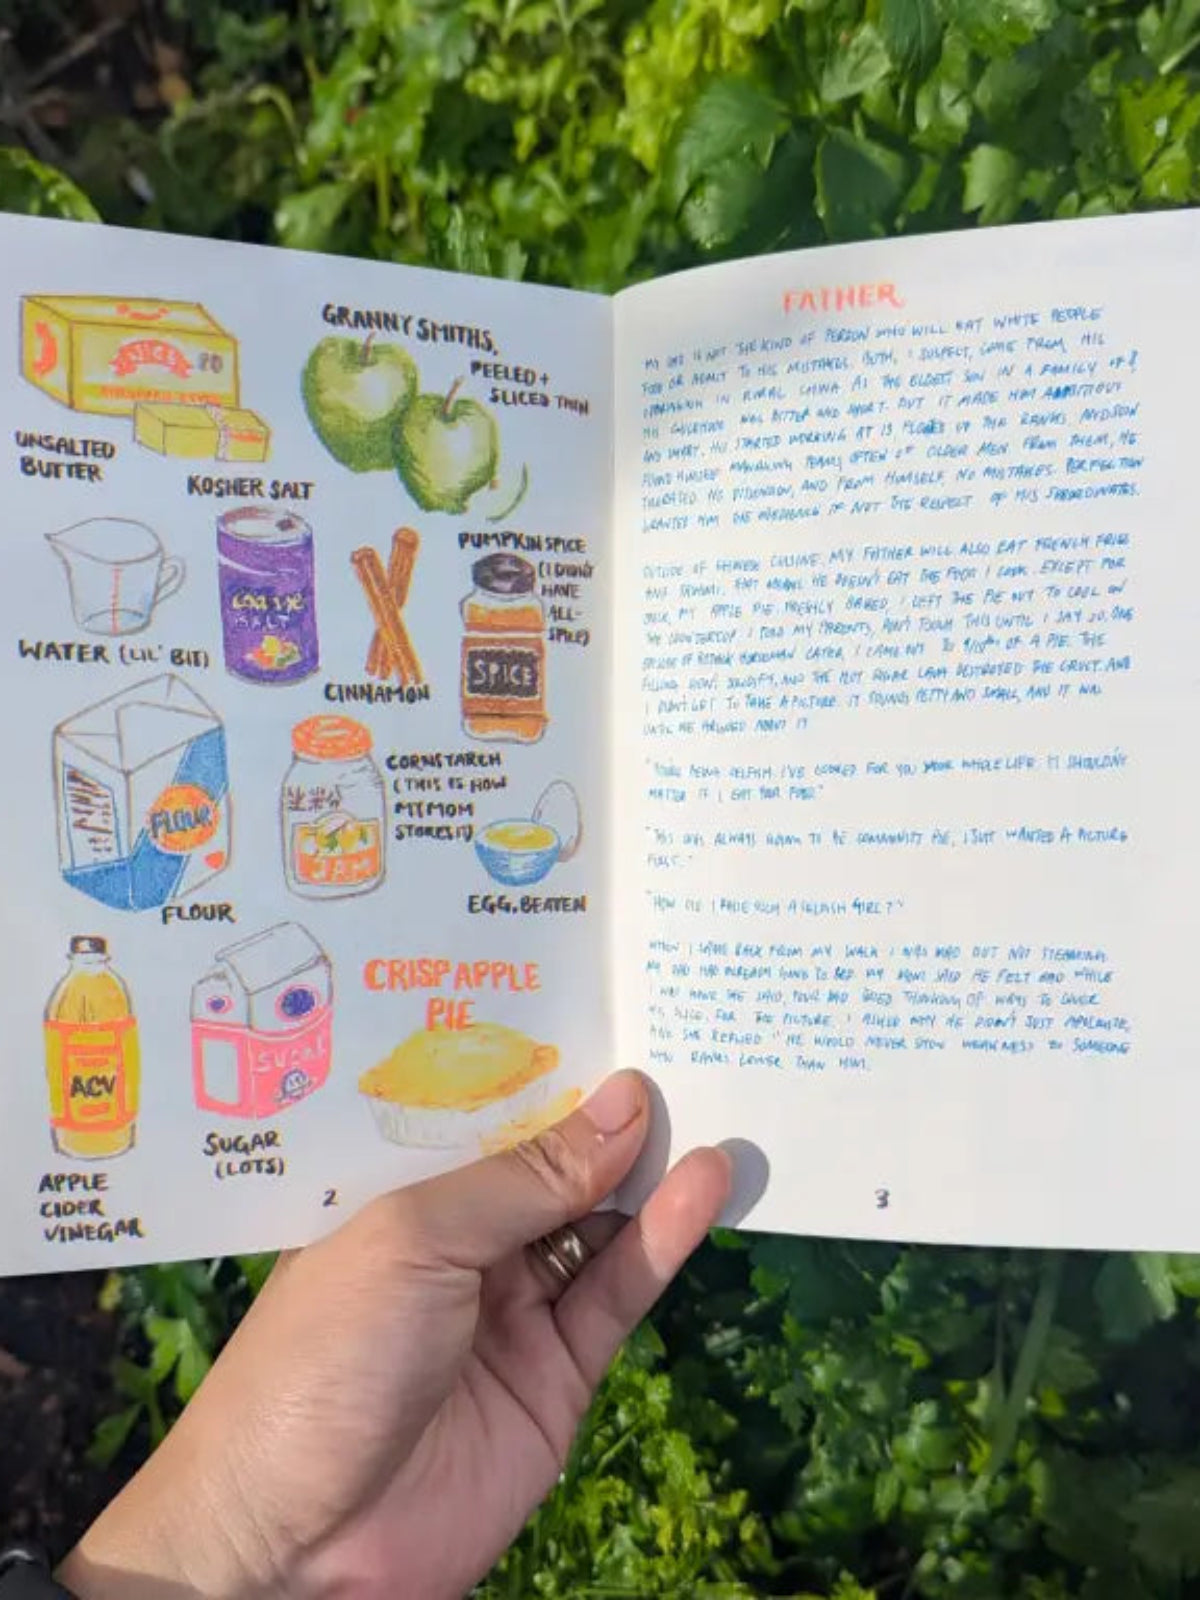 UNSALTED
BUTTER
GRANNY SMITHS,
PEELED +
SLICED THIN
KOSHER SALT
COARSE
SALT
WATER (LIL' BIT)
CINNAMON
PUMPKIN SPICE
(I DIDN'T
HAVE
ALL-
SPICE)
SPICE
FLOUR
FLOUR
CORNSTARCH
(THIS IS HOW
MY MOM
STORES IT)
JAM
EGG, BEATEN
ACV
APPLE
CIDER
VINEGAR
SUGAR
SUGAR
(LOTS)
CRISP APPLE
PIE
2
FATHER
MY DAD IS NOT THE KIND OF PERSON WHO WILL EAT WHITE PEOPLE
FOOD OR ADMIT TO HIS MISTAKES. BOTH, I SUSPECT, COME FROM HIS
UPBRINGING IN RURAL CHINA AS THE ELDEST SON IN A FAMILY OF 8
HIS CHILDHOOD WAS BITTER AND SHORT. BUT IT MADE HIM AMBITIOUS
AND SMART. HE STARTED WORKING AT 13 UP THE RANKS, AND SOON
FOUND HIMSELF MANAGING TEAMS OFTEN OF OLDER MEN. FROM THEM, HE
TOLERATED NO DISSENSION, AND FROM HIMSELF NO MISTAKES. PERFECTION
GRANTED HIM THE OBEDIENCE IF NOT THE RESPECT OF HIS SUBORDINATES.
OUTSIDE OF CHINESE CUISINE, MY FATHER WILL ALSO EAT FRENCH FRIES
AND THAT MEANS HE DOESN'T EAT THE FOOD I COOK. EXCEPT FOR
MY APPLE PIE. FRESHLY BAKED, I LEFT THE PIE OUT TO COOL ON
THE COUNTERTOP. I TOLD MY PARENTS, DON'T TOUCH THIS UNTIL I SAY SO. ONE
EPISODE OF BOJACK HORSEMAN LATER, I CAME OUT TO OF A PIE. THE
FILLING DIDN'T SOLIDIFY, AND THE HOT SUGAR LAVA DESTROYED THE CRUST. AND
I DIDN'T GET TO TAKE A PICTURE. IT SOUNDS PETTY AND SMALL, AND IT WAS
UNTIL WE ARGUED ABOUT IT
"YOU'RE BEING SELFISH. I'VE COOKED FOR YOU YOUR WHOLE LIFE. IT SHOULDN'T
MATTER IF I EAT YOUR FOOD."
"THIS WAS ALWAYS GOING TO BE COMMUNIST PIE, I JUST WANTED A PICTURE
FIRST."
"HOW DID I RAISE SUCH A SELFISH GIRL?"
WHEN I CAME BACK FROM MY WALK I WAS MAD BUT NOT STEAMING
MY DAD HAD ALREADY GONE TO BED. MY MOM SAID HE FELT BAD WHILE
I WAS GONE. SHE SAID, YOUR DAD TRIED THINKING OF WAYS TO COVER
HIS SLICE, FOR THE PICTURE. I ASKED WHY HE DIDN'T JUST APOLOGIZE,
AND SHE REPLIED "HE WOULD NEVER SHOW WEAKNESS TO SOMEONE
WHO RANKS LOWER THAN HIM.
3